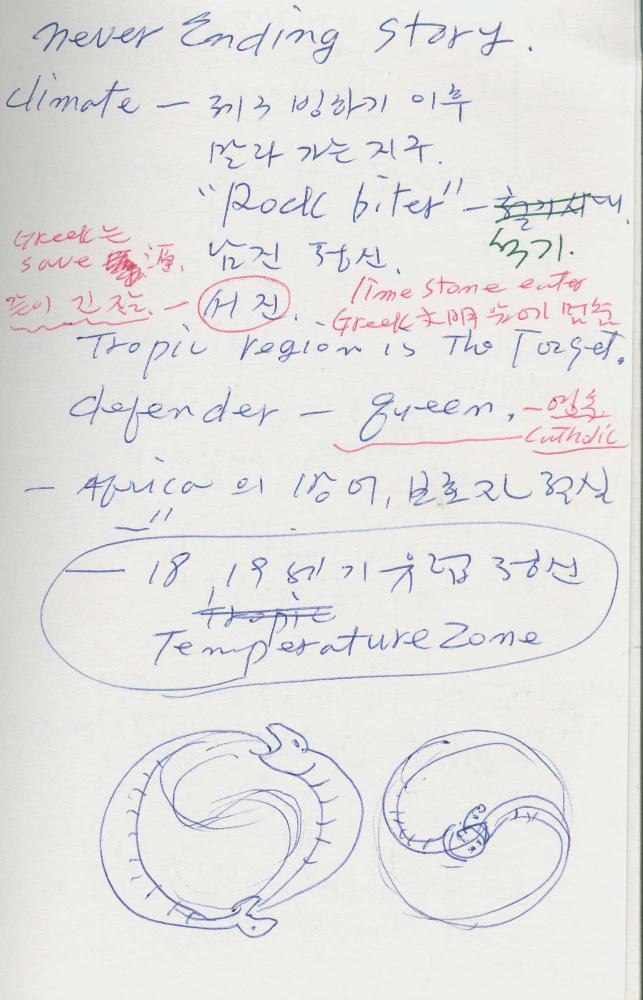 never Ending story.
climate — 제3 빙하기 이후
말라 가는 지구.
"Rock biter" —
Greek는
save
남진 정신.
석기.
서진.
lime stone eater
Greek文明
Tropic region is The Target.
defender — queen. —
Catholic
— Africa 의 방어,
— 18, 19세기 유럽 정신
Tropic
Temperature Zone